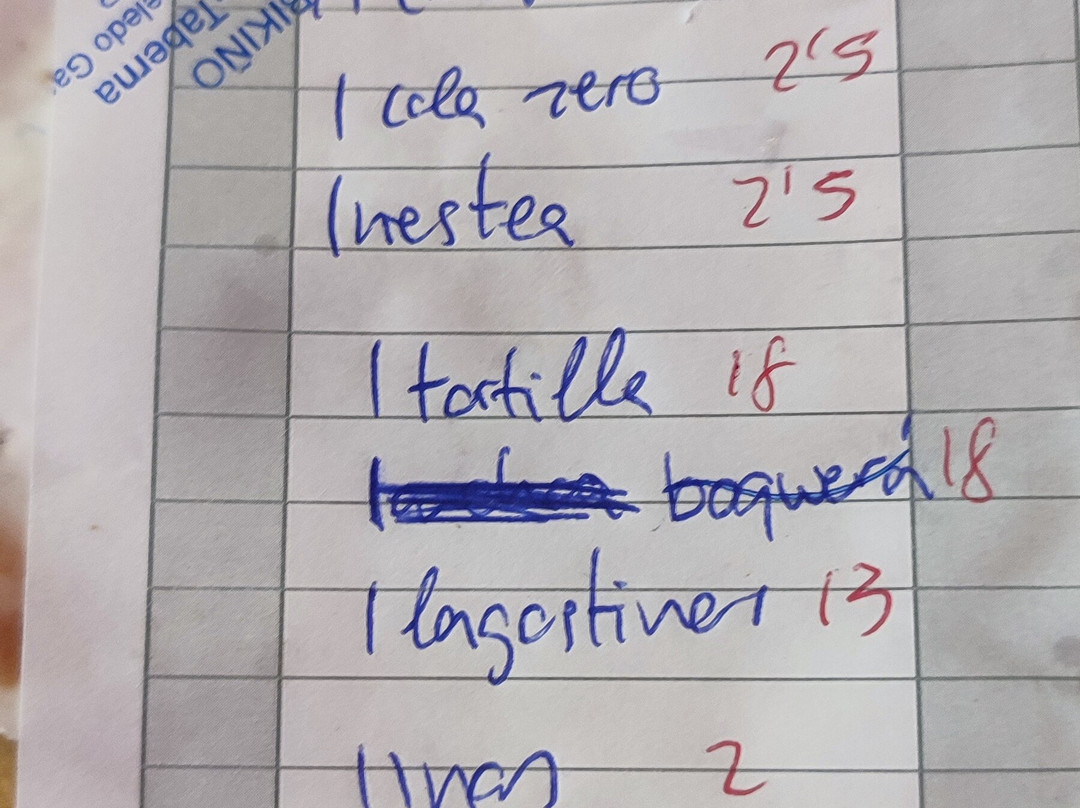 IKIÑO
Taberna
eledo Ga
1 cola zero 2'5
1 nestea 2'5
1 tortilla 18
boquerá 18
1 lagostinos 13
2